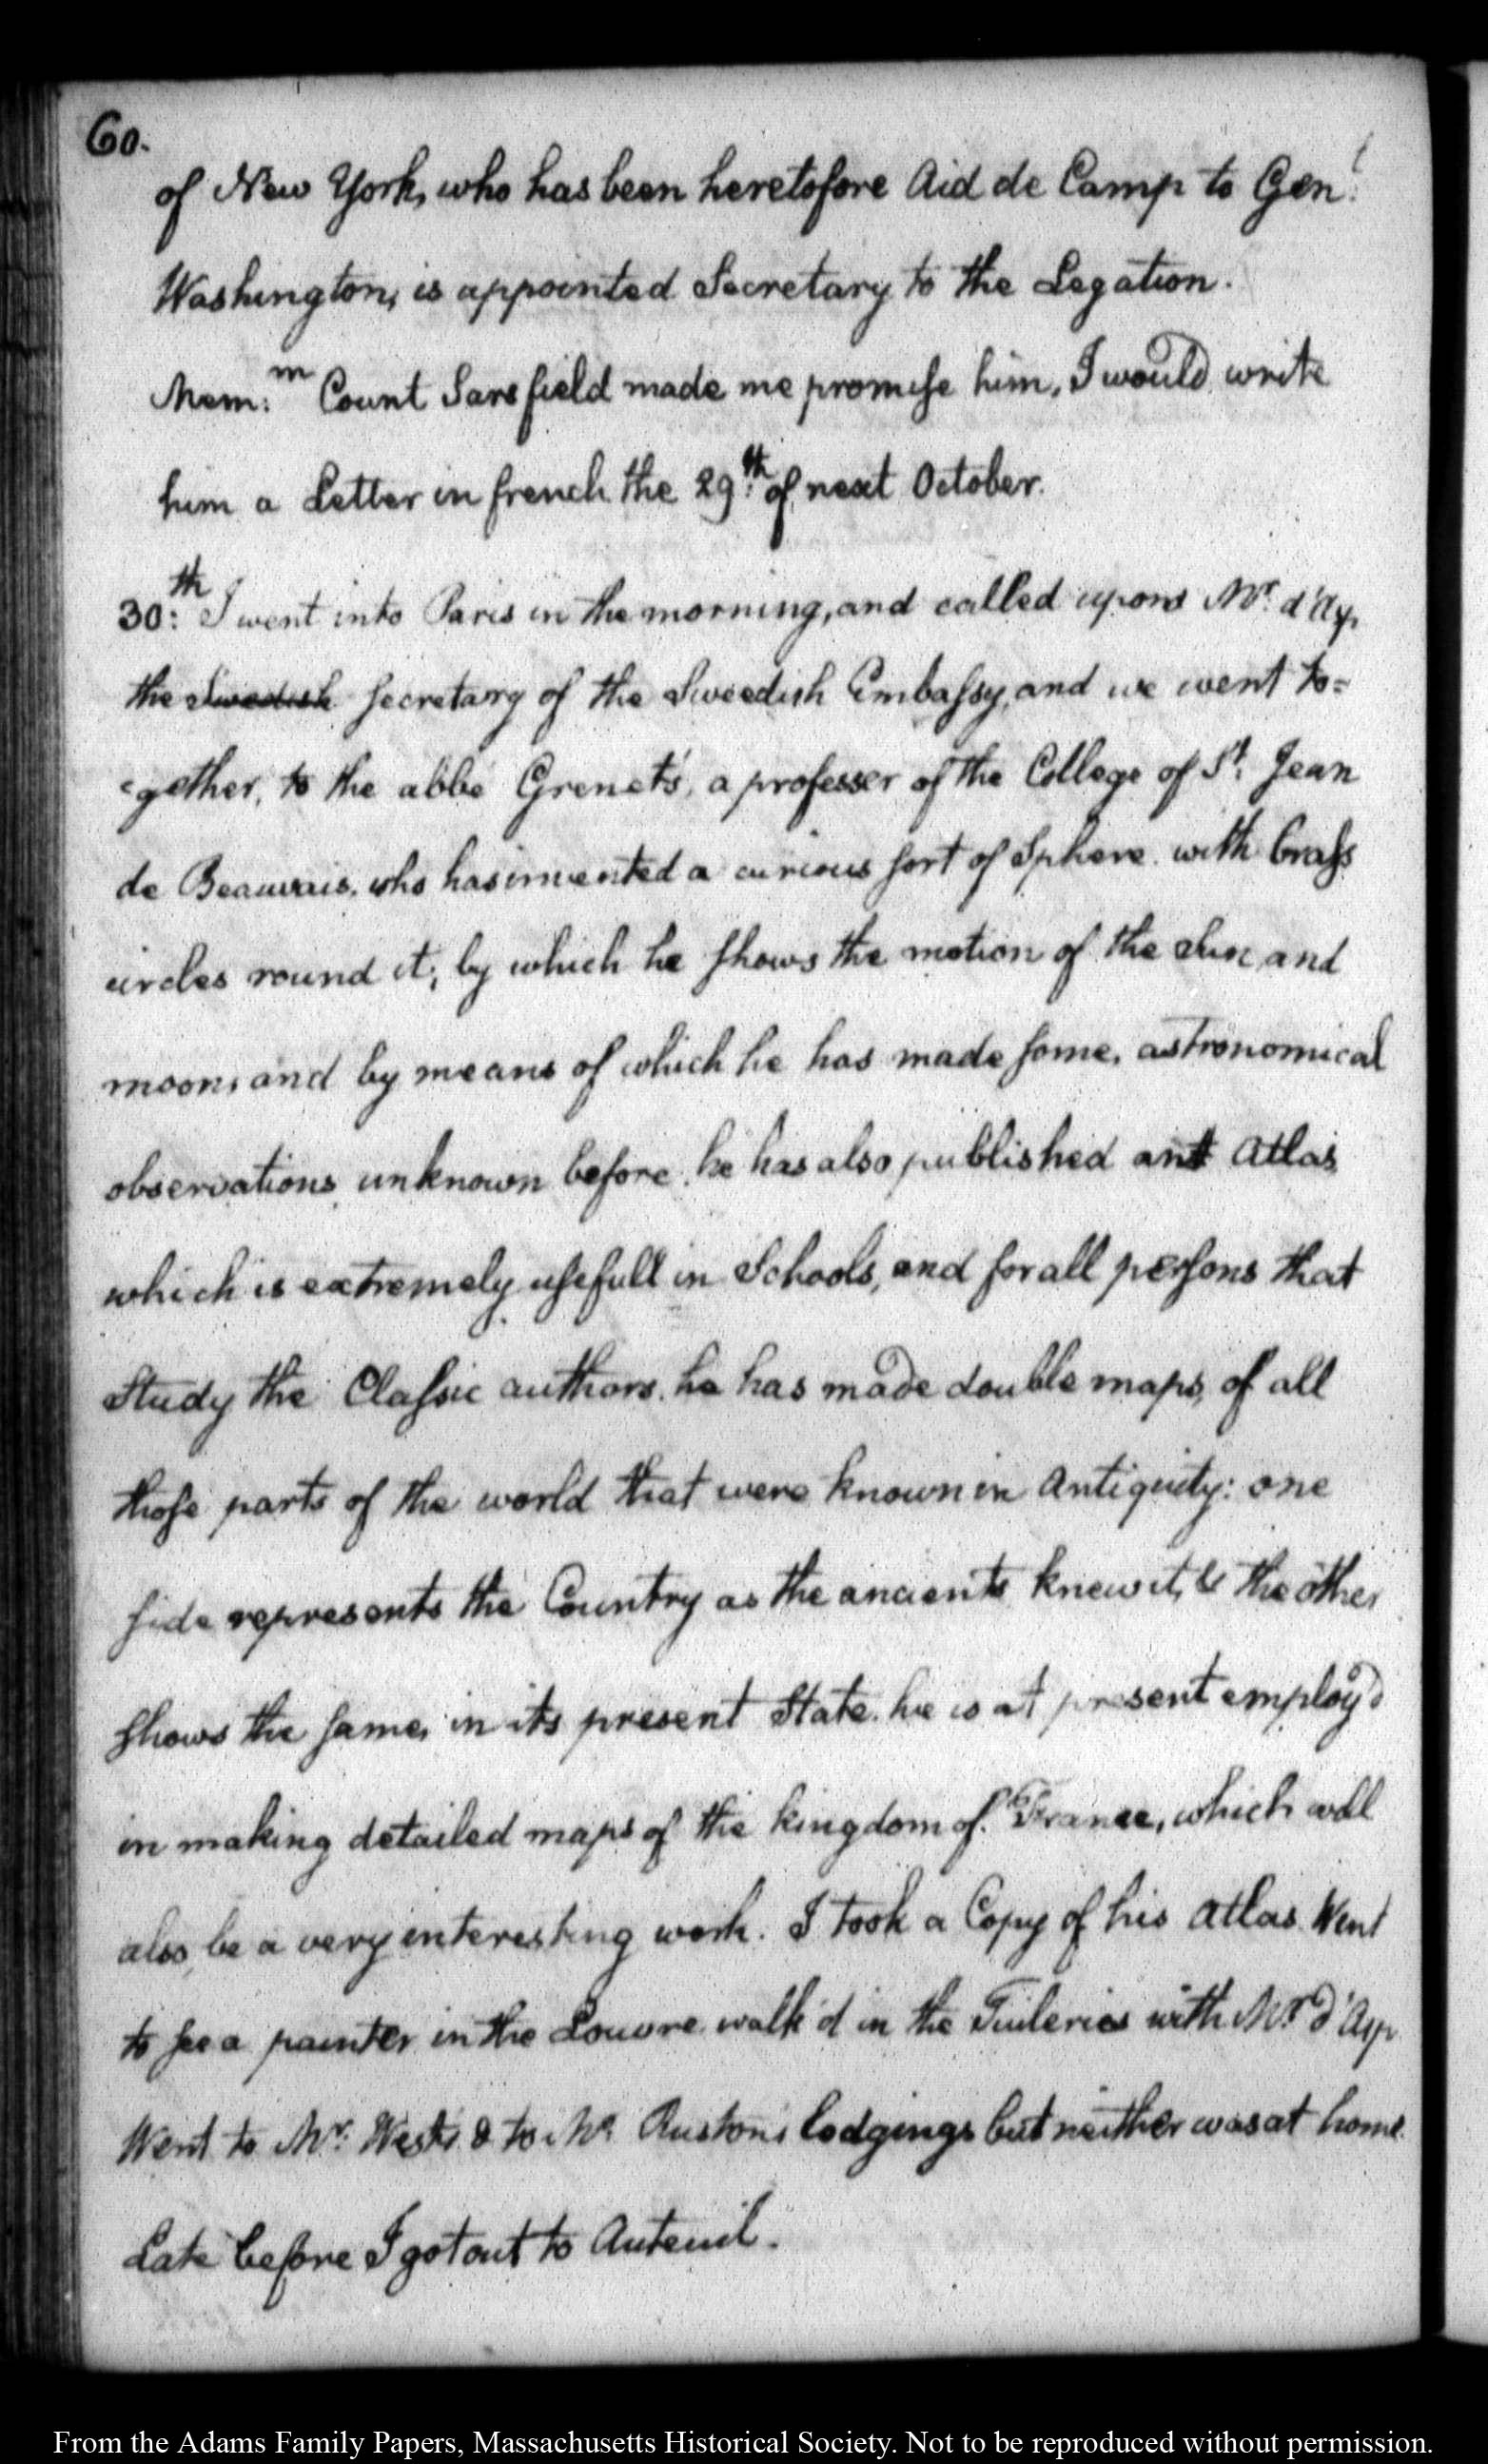 60.
of New York, who has been heretofore Aid de Camp to Genl.
Washington, is appointed Secretary to the Legation.
Mem:m Count Sarsfield made me promise him, I would write
him a Letter in french the 29th: of next October.
30:th I went into Paris in the morning, and called upon Mr. d'Ap,
the Swedish secretary of the Sweedish Embassy, and we went to=
=gether, to the abbé Grenet's, a professer of the College of St. Jean
de Beauvais, who has invented a curious sort of Sphere with brass
circles round it; by which he shows the motion of the Sun and
moon, and by means of which he has made some, astronomical
observations unknown before. he has also published an Atlas
which is extremely usefull in Schools, and for all persons that
Study the Classic authors. he has made double maps, of all
those parts of the world that were known in Antiquity: one
side represents the Country as the ancients knew it, & the other
shows the same, in its present State. he is at present employ'd
in making detailed maps of the kingdom of France, which will
also, be a very interesting work. I took a Copy of his Atlas. Went
to see a painter in the Louvre. walk'd in the Tuileries with Mr. d'Asp
Went to Mr. West's & to Mr. Ruston's lodgings but neither was at home.
Late before I got out to Auteuil.
From the Adams Family Papers, Massachusetts Historical Society. Not to be reproduced without permission.